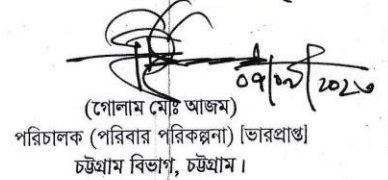 (গোলাম মোঃ আজম)
পরিচালক (পরিবার পরিকল্পনা) [ভারপ্রাপ্ত]
চট্টগ্রাম বিভাগ, চট্টগ্রাম।